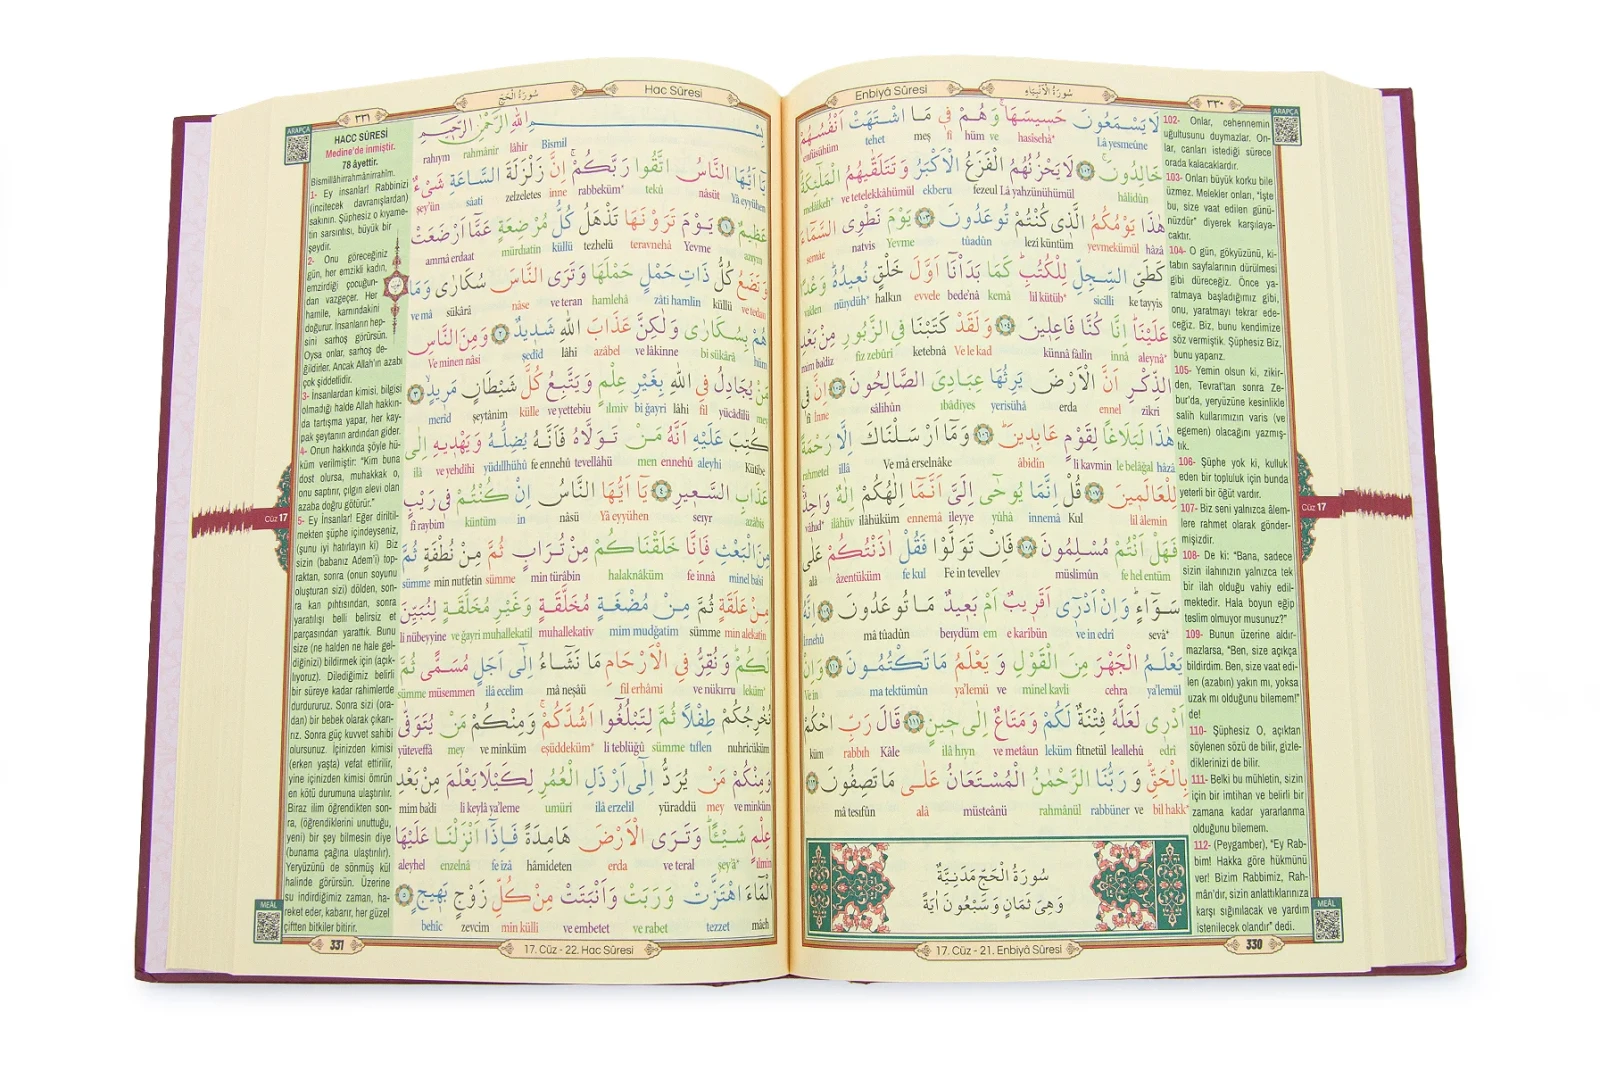 Enbiyâ Sûresi
سُورَةُ الْاَنْبِيَاءِ
٣٣٠
ARAPÇA
لَا يَسْمَعُونَ حَسِيسَهَاۚ وَهُمْ فِى مَا اشْتَهَتْ اَنْفُسُهُمْ
Lâ yesmeûne hasîsehâ* hüm ve fî meş tehet enfüsühüm
خَالِدُونَۚ ١٠٢ لَا يَحْزُنُهُمُ الْفَزَعُ الْاَكْبَرُ وَتَتَلَقّٰيهُمُ الْمَلٰٓئِكَةُۜ
hâlidûn Lâ yahzünühümül fezeul ekberu ve tetelekkâhümül melâikeh*
هٰذَا يَوْمُكُمُ الَّذِى كُنْتُمْ تُوعَدُونَ ١٠٣ يَوْمَ نَطْوِى السَّمَٓاءَ
hâzâ yevmekümül lezî küntüm tûadûn Yevme natvis semâe
كَطَيِّ السِّجِلِّ لِلْكُتُبِۜ كَمَا بَدَأْنَٓا اَوَّلَ خَلْقٍ نُعِيدُهُۜ وَعْدًا
ke tayyis sicilli lil kütüb* kemâ bede'nâ evvele halkın nüıydüh* va'den
عَلَيْنَاۜ اِنَّا كُنَّا فَاعِلِينَ ١٠٤ وَلَقَدْ كَتَبْنَا فِى الزَّبُورِ مِنْ بَعْدِ
aleynâ* innâ künnâ fâilîn Ve le kad ketebnâ fiz zebûri mim ba'diz
الذِّكْرِ اَنَّ الْاَرْضَ يَرِثُهَا عِبَادِىَ الصَّالِحُونَ ١٠٥ اِنَّ فِى
zikri ennel erda yerisühâ ıbâdiyes sâlihûn İnne fî
هٰذَا لَبَلَاغًا لِقَوْمٍ عَابِدِينَۜ ١٠٦ وَمَٓا اَرْسَلْنَاكَ اِلَّا رَحْمَةً
hâzâ le belâğal li kavmin âbidîn Ve mâ erselnâke illâ rahmetel
لِلْعَالَمِينَ ١٠٧ قُلْ اِنَّمَا يُوحٰٓى اِلَىَّ اَنَّمَٓا اِلٰهُكُمْ اِلٰهٌ وَاحِدٌۚ
lil âlemîn Kul innemâ yûhâ ileyye ennemâ ilâhüküm ilâhüv vâhıd*
فَهَلْ اَنْتُمْ مُسْلِمُونَ ١٠٨ فَاِنْ تَوَلَّوْا فَقُلْ اٰذَنْتُكُمْ عَلٰى
fe hel entüm müslimûn Fe in tevellev fe kul âzentüküm alâ
سَوَٓاءٍۜ وَاِنْ اَدْرِٓى اَقَرِيبٌ اَمْ بَعِيدٌ مَا تُوعَدُونَ ١٠٩ اِنَّهُ
sevâ* ve in edrî e karîbün em beıydüm mâ tûadûn İnnehû
يَعْلَمُ الْجَهْرَ مِنَ الْقَوْلِ وَيَعْلَمُ مَا تَكْتُمُونَ ١١٠ وَاِنْ
ya'lemül cehra minel kavli ve ya'lemü ma tektümûn Ve in
اَدْرِى لَعَلَّهُ فِتْنَةٌ لَكُمْ وَمَتَاعٌ اِلٰى حِينٍ ١١١ قَالَ رَبِّ احْكُمْ
edrî leallehû fitnetül leküm ve metâun ilâ hıyn Kâle rabbıh küm
بِالْحَقِّۜ وَرَبُّنَا الرَّحْمٰنُ الْمُسْتَعَانُ عَلٰى مَا تَصِفُونَ ١١٢
bil hakk* ve rabbüner rahmânül müsteânü alâ mâ tesıfûn
سُورَةُ الْحَجِّ مَدَنِيَّةٌ
وَهِىَ ثَمَانٍ وَسَبْعُونَ اٰيَةً
102- Onlar, cehennemin
uğultusunu duymazlar. On-
lar, canları istediği sürece
orada kalacaklardır.
103- Onları büyük korku bile
üzmez. Melekler onları, "İşte
bu, size vaat edilen günü-
nüzdür" diyerek karşılaya-
caktır.
104- O gün, gökyüzünü, ki-
tabın sayfalarının dürülmesi
gibi düreceğiz. Önce ya-
ratmaya başladığımız gibi,
onu, yaratmayı tekrar ede-
ceğiz. Biz, bunu kendimize
söz vermiştik. Şüphesiz Biz,
bunu yaparız.
105- Yemin olsun ki, zikir-
den, Tevrat'tan sonra Ze-
bur'da, yeryüzüne kesinlikle
salih kullarımızın varis (ve
egemen) olacağını yazmış-
tık.
106- Şüphe yok ki, kulluk
eden bir topluluk için bunda
yeterli bir öğüt vardır.
107- Biz seni yalnızca âlem-
lere rahmet olarak gönder-
mişizdir.
108- De ki: "Bana, sadece
sizin ilahınızın yalnızca tek
bir ilah olduğu vahiy edil-
mektedir. Hala boyun eğip
teslim olmuyor musunuz?"
109- Bunun üzerine aldır-
mazlarsa, "Ben, size açıkça
bildirdim. Ben, size vaat edi-
len (azabın) yakın mı, yoksa
uzak mı olduğunu bilemem!"
de!
110- Şüphesiz O, açıktan
söylenen sözü de bilir, gizle-
diklerinizi de bilir.
111- Belki bu mühletin, sizin
için bir imtihan ve belirli bir
zamana kadar yararlanma
olduğunu bilemem.
112- (Peygamber), "Ey Rab-
bim! Hakka göre hükmünü
ver! Bizim Rabbimiz, Rah-
mân'dır, sizin anlattıklarınıza
karşı sığınılacak ve yardım
istenilecek olandır" dedi.
Cüz 17
MEÂL
17. Cüz - 21. Enbiyâ Sûresi
330
Hac Sûresi
سُورَةُ الْحَجِّ
٣٣١
ARAPÇA
بِسْمِ اللّٰهِ الرَّحْمٰنِ الرَّحِيمِ
Bismil lâhir rahmânir rahıym
يَٓا اَيُّهَا النَّاسُ اتَّقُوا رَبَّكُمْۚ اِنَّ زَلْزَلَةَ السَّاعَةِ شَىْءٌ
Yâ eyyühen nâsüt tekû rabbeküm* inne zelzeletes sâati şey'ün
عَظِيمٌ ١ يَوْمَ تَرَوْنَهَا تَذْهَلُ كُلُّ مُرْضِعَةٍ عَمَّٓا اَرْضَعَتْ
azıym Yevme teravnehâ tezhelü küllü mürdıatin ammâ erdaat
وَتَضَعُ كُلُّ ذَاتِ حَمْلٍ حَمْلَهَا وَتَرَى النَّاسَ سُكَارٰى وَمَا
ve tedau küllü zâti hamlin hamlehâ ve teran nâse sükârâ ve mâ
هُمْ بِسُكَارٰى وَلٰكِنَّ عَذَابَ اللّٰهِ شَدِيدٌ ٢ وَمِنَ النَّاسِ
hüm bi sükârâ ve lâkinne azâbel lâhi şedîd Ve minen nâsi
مَنْ يُجَادِلُ فِى اللّٰهِ بِغَيْرِ عِلْمٍ وَيَتَّبِعُ كُلَّ شَيْطَانٍ مَرِيدٍۙ ٣
mey yücâdilü fil lâhi bi ğayri ılmiv ve yettebiu külle şeytânim merîd
كُتِبَ عَلَيْهِ اَنَّهُ مَنْ تَوَلَّاهُ فَاَنَّهُ يُضِلُّهُ وَيَهْدِيهِ اِلٰى
Kütibe aleyhi ennehû men tevellâhü fe ennehû yüdıllühû ve yehdîhi ilâ
عَذَابِ السَّعِيرِ ٤ يَٓا اَيُّهَا النَّاسُ اِنْ كُنْتُمْ فِى رَيْبٍ
azâbis seıyr Yâ eyyühen nâsü in küntüm fî raybim
مِنَ الْبَعْثِ فَاِنَّا خَلَقْنَاكُمْ مِنْ تُرَابٍ ثُمَّ مِنْ نُطْفَةٍ ثُمَّ
minel ba'si fe innâ halaknâküm min türâbin sümme min nutfetin sümme
مِنْ عَلَقَةٍ ثُمَّ مِنْ مُضْغَةٍ مُخَلَّقَةٍ وَغَيْرِ مُخَلَّقَةٍ لِنُبَيِّنَ
min alekatin sümme mim mudğatim muhallekativ ve ğayri muhallekatil li nübeyyine
لَكُمْۜ وَنُقِرُّ فِى الْاَرْحَامِ مَا نَشَٓاءُ اِلٰٓى اَجَلٍ مُسَمًّى ثُمَّ
leküm* ve nükırru fil erhâmi mâ neşâü ilâ ecelim müsemmen sümme
نُخْرِجُكُمْ طِفْلًا ثُمَّ لِتَبْلُغُٓوا اَشُدَّكُمْۚ وَمِنْكُمْ مَنْ يُتَوَفّٰى
nuhricüküm tıflen sümme li teblüğû eşüddeküm* ve minküm mey yüteveffâ
وَمِنْكُمْ مَنْ يُرَدُّ اِلٰٓى اَرْذَلِ الْعُمُرِ لِكَيْلَا يَعْلَمَ مِنْ بَعْدِ
ve minküm mey yüraddü ilâ erzelil umüri li keylâ ya'leme mim ba'di
عِلْمٍ شَيْـًٔاۜ وَتَرَى الْاَرْضَ هَامِدَةً فَاِذَٓا اَنْزَلْنَا عَلَيْهَا
ılmin şey'â* ve teral erda hâmideten fe izâ enzelnâ aleyhel
الْمَٓاءَ اهْتَزَّتْ وَرَبَتْ وَاَنْبَتَتْ مِنْ كُلِّ زَوْجٍ بَهِيجٍ ٥
mâeh tezzet ve rabet ve embetet min külli zevcim behîc
HACC SÛRESİ
Medine'de inmiştir.
78 âyettir.
Bismillâhirrahmânirrahîm.
1- Ey insanlar! Rabbinizi
(incitecek davranışlardan)
sakının. Şüphesiz o kıyame-
tin sarsıntısı, büyük bir
şeydir.
2- Onu göreceğiniz
gün, her emzikli kadın,
emzirdiği çocuğun-
dan vazgeçer. Her
hamile, karnındakini
doğurur. İnsanların hep-
sini sarhoş görürsün.
Oysa onlar, sarhoş de-
ğildirler. Ancak Allah'ın azabı
çok şiddetlidir.
3- İnsanlardan kimisi, bilgisi
olmadığı halde Allah hakkın-
da tartışma yapar, her kay-
pak şeytanın ardından gider.
4- Onun hakkında şöyle hü-
küm verilmiştir: "Kim buna
dost olursa, muhakkak o,
onu saptırır, çılgın alevi olan
azaba doğru götürür."
5- Ey İnsanlar! Eğer diriltil-
mekten şüphe içindeyseniz,
(şunu iyi hatırlayın ki) Biz
sizin (babanız Adem'i) top-
raktan, sonra (onun soyunu
oluşturan sizi) dölden, son-
ra kan pıhtısından, sonra
yaratılışı belli belirsiz et
parçasından yarattık. Bunu
size (ne halden ne hale gel-
diğinizi) bildirmek için (açık-
lıyoruz). Dilediğimiz belirli
bir süreye kadar rahimlerde
durdururuz. Sonra sizi (ora-
dan) bir bebek olarak çıkarı-
rız. Sonra güç kuvvet sahibi
olursunuz. İçinizden kimisi
(erken yaşta) vefat ettirilir,
yine içinizden kimisi ömrün
en kötü durumuna ulaştırılır.
Biraz ilim öğrendikten son-
ra, (öğrendiklerini unuttuğu,
yeni) bir şey bilmesin diye
(bunama çağına ulaştırılır).
Yeryüzünü de sönmüş kül
halinde görürsün. Üzerine
su indirdiğimiz zaman, ha-
reket eder, kabarır, her güzel
çiften bitkiler bitirir.
Cüz 17
MEÂL
331
17. Cüz - 22. Hac Sûresi